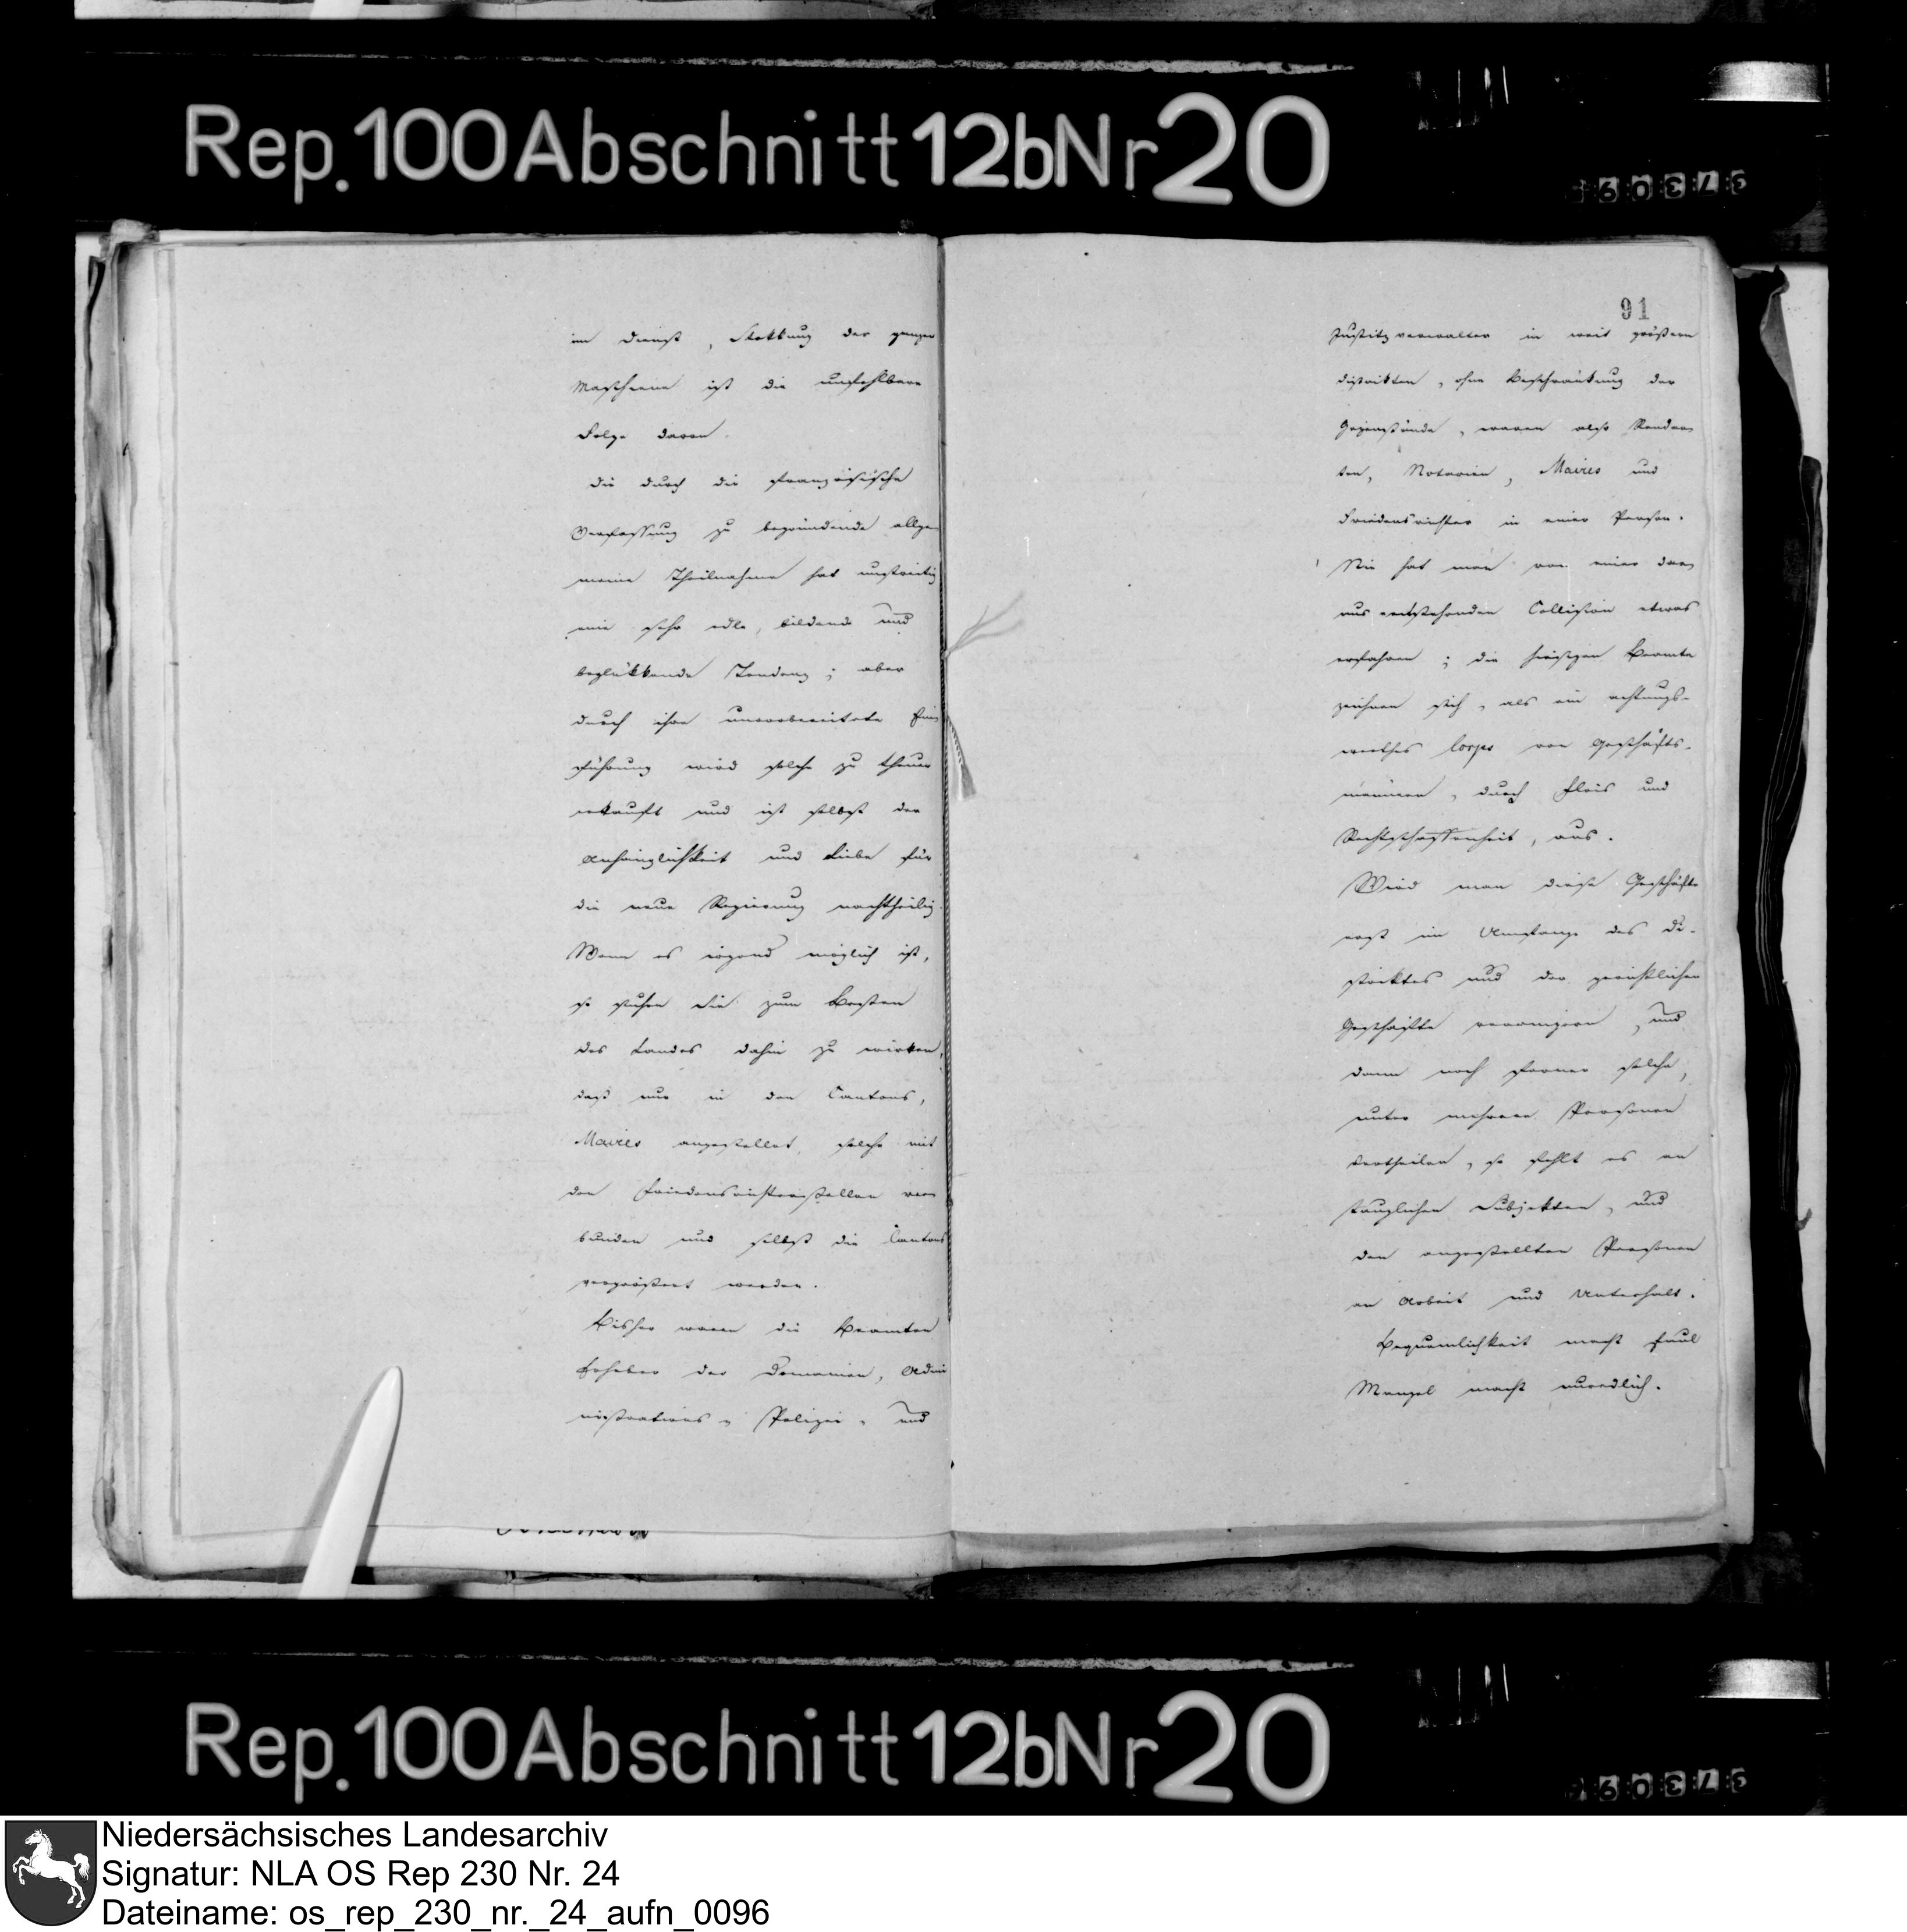 Rep. 100 Abschnitt 12b Nr 20
im Dienst, Stokkung der ganzen
Maschiene ist die unfehlbare
Folge davon.
Die durch die französische
Verfassung zu begründende allge
meine Theilnahme hat unstreitig
eine sehr edle, bildende und
beglükkende Tendenz; aber
durch ihre unvorbereitete Ein
führung wird solche zu theuer
erkauft und ist selbst der
Anhänglichkeit und Liebe für
die neue Regierung nachtheilig.
Wenn es irgend möglich ist,
so suchen Sie zum Besten
des Landes dahin zu wirken,
daß nur in den Cantons,
Maires angestellet, solche mit
den Friedensrichterstellen ver
bunden und selbst die Cantons
vergrößert werden.
Bisher waren die Beamten
Erheber der Domainen, Admi
nistrations- Polizei- und
91
Justitzverwalter in weit größern
Distrikten, ohne Beschränkung der
Gegenstände, waren also Rendan
ten, Notarien, Maires und
Friedensrichter in einer Person.
Nie hat man von einer dar
aus entstehenden Collision etwas
erfahren; die hiesigen Beamte
zeichnen sich, als ein achtungs-
werthes Corps von Geschäfts-
männern, durch Fleis und
Rechtschaffenheit, aus.
Wird man diese Geschäfte
erst im Umfange des Di-
striktes und der gerichtlichen
Geschäfte verengern, und
dann noch ferner solche,
unter mehrere Personen
vertheilen, so fehlt es an
tauglichen Subjekten, und
den angestellten Personen
an Arbeit und Unterhalt.
Bequemlichkeit macht faul
Mangel macht unredlich.
Rep. 100 Abschnitt 12b Nr 20
Niedersächsisches Landesarchiv
Signatur: NLA OS Rep 230 Nr. 24
Dateiname: os_rep_230_nr._24_aufn_0096